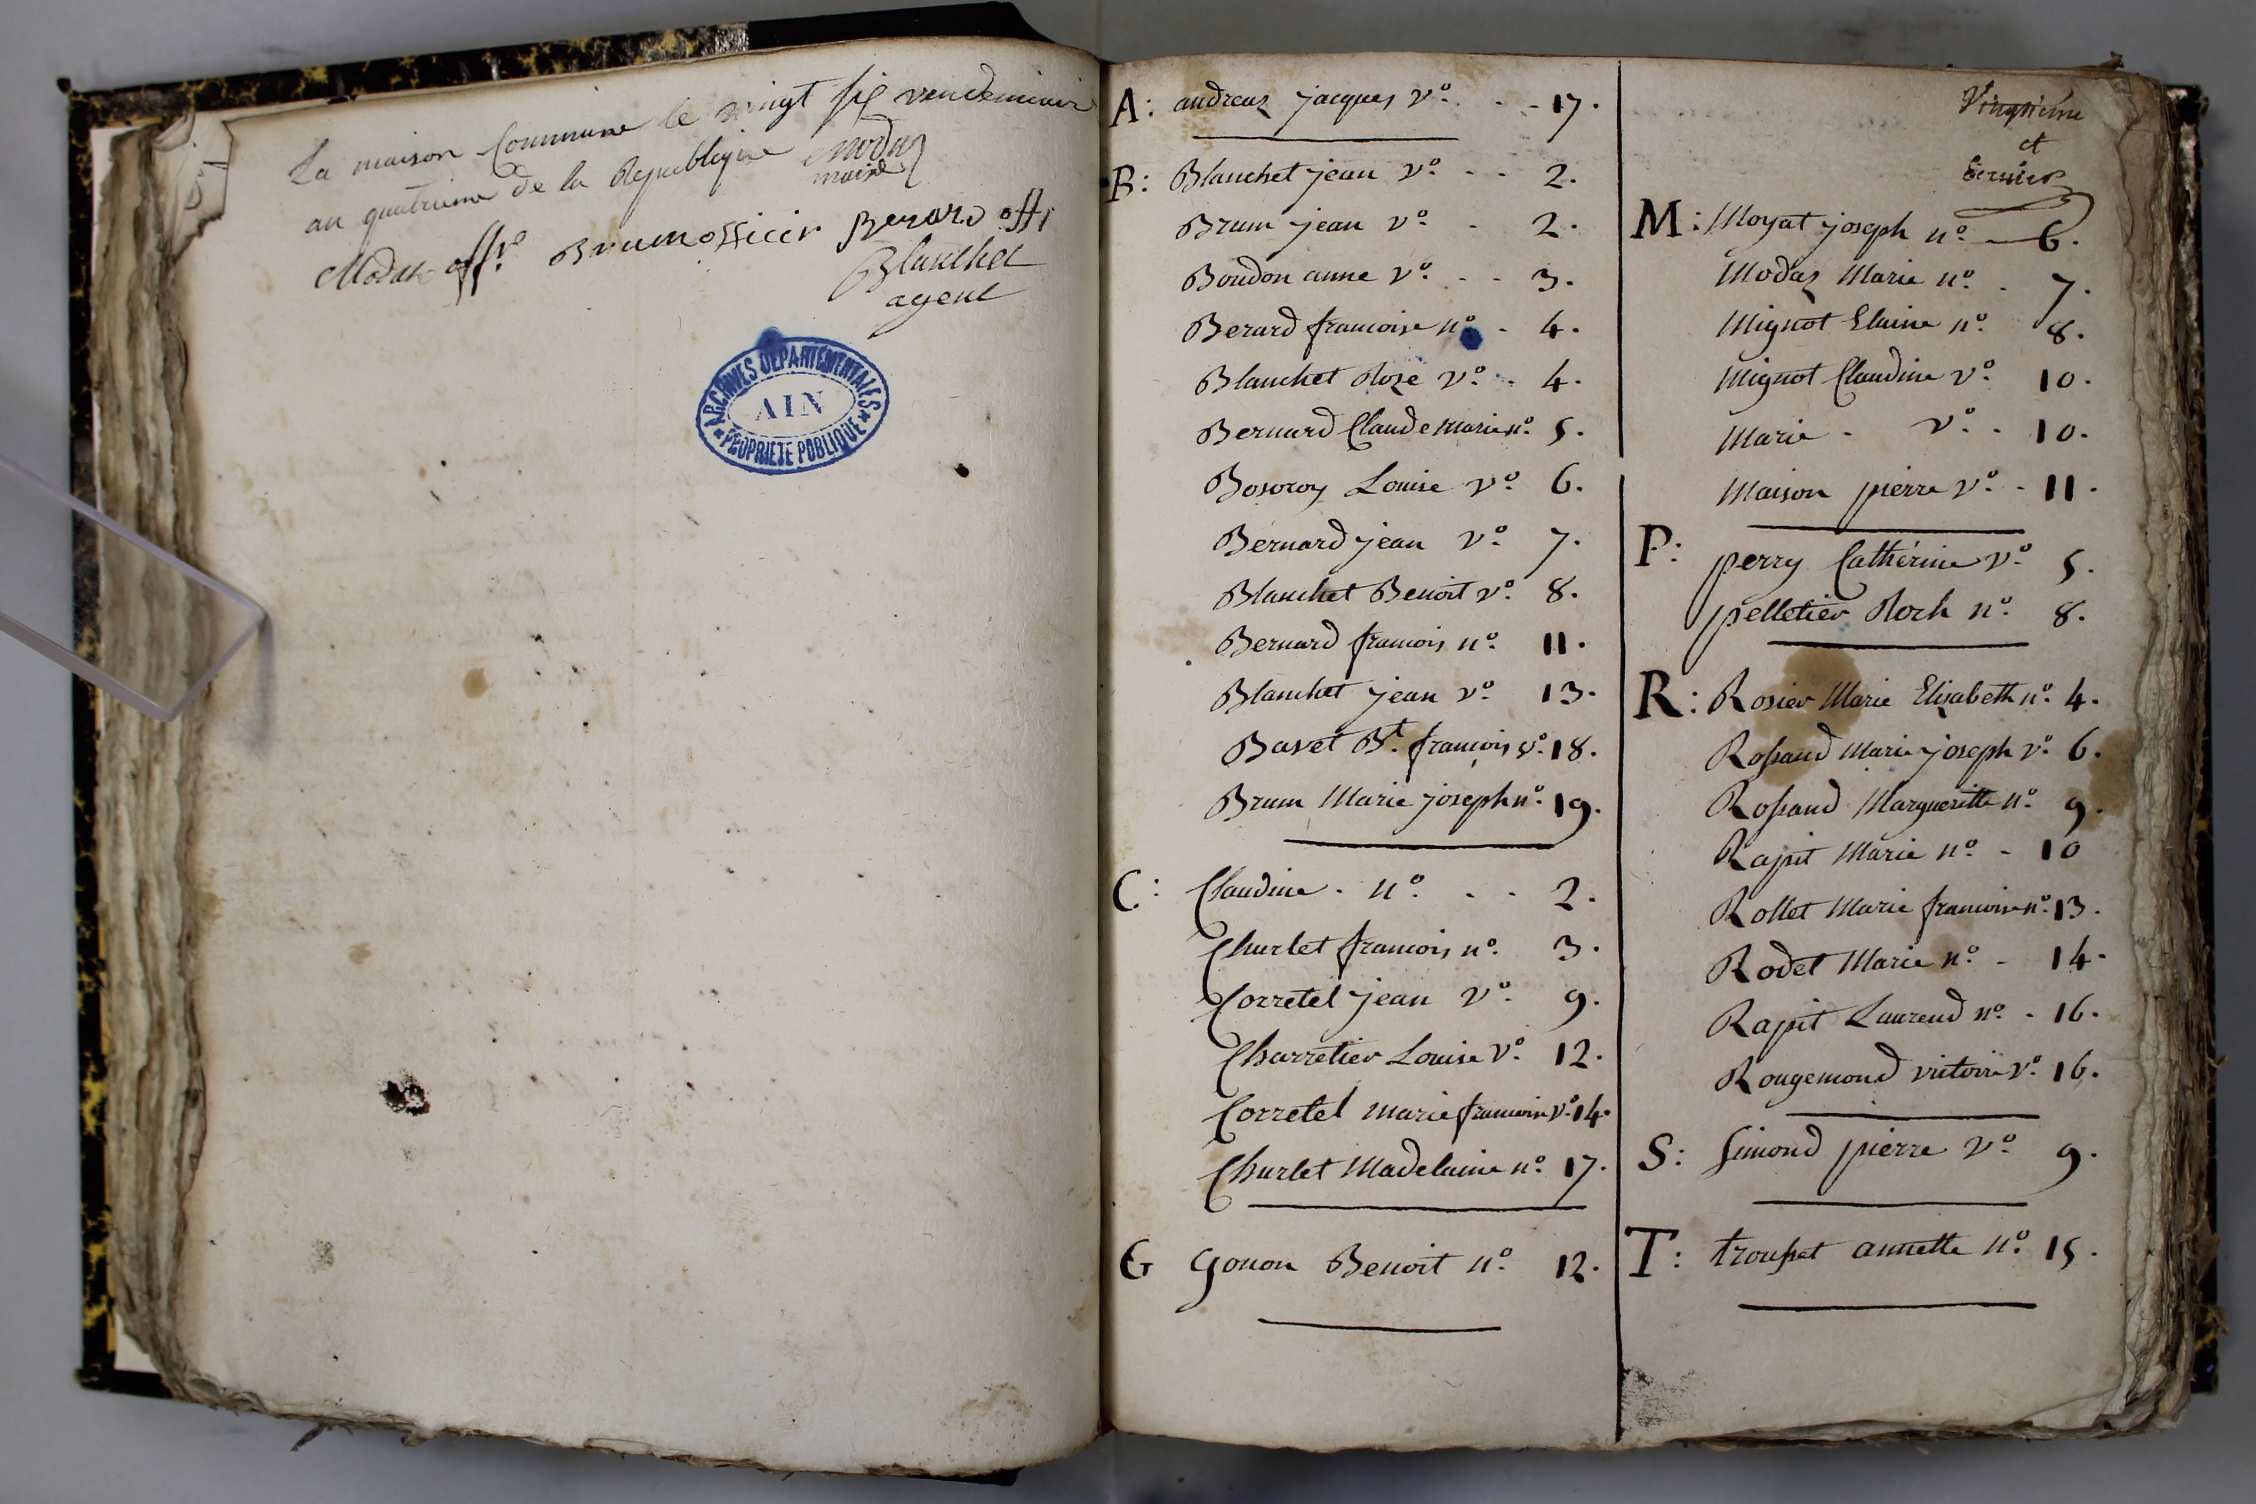 La maison Commune le vingt six vendemiair
an quatrieme de la Republique Modas
maire
Modas offr. Brum officier Berard offi
Blanchet
agent
ARCHIVES DÉPARTEMENTALES
AIN
PROPRIÉTÉ PUBLIQUE
A: andreaz jacques vº. - - 17.
B: Blanchet jean vº. - - 2.
Brum jean vº. - 2.
Boudon anne vº. - - 3.
Berard francoise nº - 4.
Blanchet Roze vº. - 4.
Bernard Claude Marie nº. 5.
Louise vº. 6.
Bernard jean vº. 7.
Blanchet Benoit vº. 8.
Bernard francois nº. 11.
Blanchet jean vº. 13.
Bavet Bt. francois vº. 18.
Brum Marie joseph nº. 19.
C: Claudine - nº. - - 2.
Churlet francois nº. 3.
Corretel jean vº. 9.
Charretier Louise vº. 12.
Corretel marie francoise vº. 14.
Churlet Madelaine nº. 17.
G Gonon Benoit nº. 12.
Vingtieme
et
dernier
M: Moyat joseph nº. - 6.
Modas Marie nº. - 7.
Mignot Elaine nº. 8.
Mignot Claudine vº. 10.
Marie - vº. - 10.
Maison pierre vº. - 11.
P: perry Catherine vº. 5.
pelletier Roch nº. 8.
R: Rosier Marie Elisabeth nº. 4.
Rossand Marie joseph vº. 6.
Rossand Margueritte nº. 9.
Rapit Marie nº. - 10
Rollet Marie francoise nº. 13.
Rodet Marie nº. - 14.
Rapit Laurend nº. - 16.
Rougemond victoire vº. 16.
S: Simond pierre vº. 9.
T: trousset annette nº. 15.